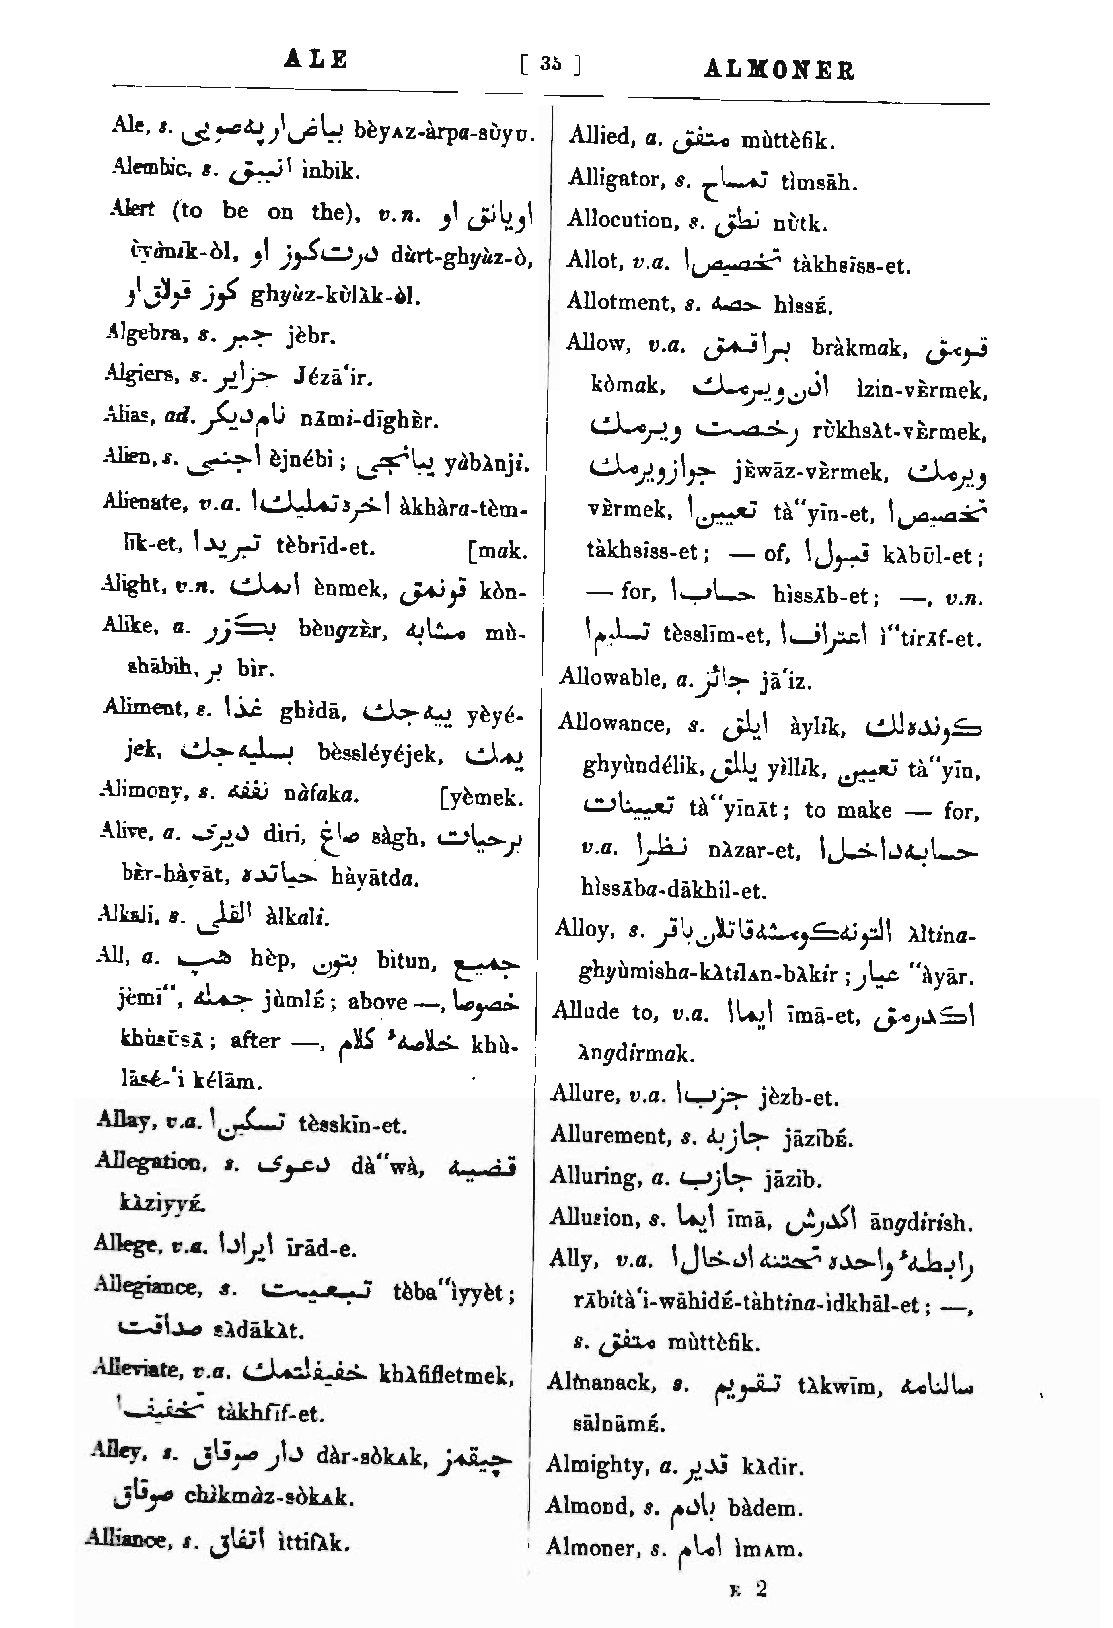 ALE [ 35 ] ALMONER
Ale, s. بياض ارپه صويى bèyᴀz-àrpa-sùyᴜ.
Alembic, s. انبيق ìnbik.
Alert (to be on the), v.n. اويانق او
ùyànɪk-òl, درت كوز او dùrt-ghyùz-ò,
كوز قولاق او ghyùz-kùlᴀ̀k-òl.
Algebra, s. جبر jèbr.
Algiers, s. جزاير Jézā'ir.
Alias, ad. نام ديكر nᴀ̄mi-dīghᴇ̀r.
Alien, s. اجنبى èjnébi; يبانجى yàbᴀ̀nji.
Alienate, v.a. اخره تمليك ا àkhàra-tèm-
līk-et, تبريد ا tèbrīd-et. [mak.
Alight, v.n. انمك ènmek, قونمق kòn-
Alike, a. بكزر bèngzᴇ̀r, مشابه mù-
shābih, بر bìr.
Aliment, s. غذا ghìdā, ييه جك yèyé-
jek, بسليه جك bèssléyéjek, يمك
Alimony, s. نفقه nàfaka. [yèmek.
Alive, a. ديرى dìri, صاغ sàgh, برحيات
bᴇ̀r-hàyāt, حياتده hàyātda.
Alkali, s. القلى àlkali.
All, a. هپ hèp, بتون bìtun, جميع
jèmī", جمله jùmlᴇ́; above —, خصوصا
khùsūsᴀ̄; after —, خلاصهٔ كلام khù-
lāsé-'i kélām.
Allay, v.a. تسكين ا tèsskīn-et.
Allegation, s. دعوى dà"wà, قضيه
kᴀ̀ziyyᴇ́.
Allege, v.a. ايراد ا īrād-e.
Allegiance, s. تبعيت tèba"ìyyèt;
صداقت sᴀ̀dākᴀ̀t.
Alleviate, v.a. خفيفلتمك khᴀ̀fifletmek,
تخفيف ا tàkhfīf-et.
Alley, s. دار صوقاق dàr-sòkᴀk, چيقمز
صوقاق chìkmàz-sòkᴀk.
Alliance, s. اتفاق ìttifᴀ̀k.
Allied, a. متفق mùttèfik.
Alligator, s. تمساح tìmsāh.
Allocution, s. نطق nùtk.
Allot, v.a. تخصيص ا tàkhsīss-et.
Allotment, s. حصه hìssᴇ́.
Allow, v.a. براقمق bràkmak, قومق
kòmak, اذن ويرمك ìzin-vᴇ̀rmek,
رخصت ويرمك rùkhsᴀ̀t-vᴇ̀rmek,
جواز ويرمك jᴇ̀wāz-vᴇ̀rmek, ويرمك
vᴇ̀rmek, تعيين ا tà"yīn-et, تخصيص ا
tàkhsīss-et; — of, قبول ا kᴀ̀būl-et;
— for, حساب ا hìssᴀ̄b-et; —, v.n.
تسليم ا tèsslīm-et, اعتراف ا ì"tirᴀ̄f-et.
Allowable, a. جائز jā'iz.
Allowance, s. ايلق àylɪk, كونده لك
ghyùndélik, يللق yìllɪk, تعيين tà"yīn,
تعيينات tà"yīnᴀ̄t; to make — for,
v.a. نظر ا nᴀ̀zar-et, حسابه داخل ا
hìssᴀ̄ba-dākhil-et.
Alloy, s. التونه كومشه قاتلان باقر ᴀ̀ltina-
ghyùmisha-kᴀ̀tɪlᴀn-bᴀ̀kir; عيار "àyār.
Allude to, v.a. ايما ا īmā-et, اكدرمق
ᴀ̀ngdirmak.
Allure, v.a. جزب ا jèzb-et.
Allurement, s. جازبه jāzibᴇ́.
Alluring, a. جازب jāzib.
Allusion, s. ايما īmā, اكدرش āngdirish.
Ally, v.a. رابطهٔ واحده تحتنه ادخال ا
rᴀ̄bità'i-wāhidᴇ́-tàhtina-ìdkhāl-et; —,
s. متفق mùttèfik.
Almanack, s. تقويم tᴀ̀kwīm, سالنامه
sālnāmᴇ́.
Almighty, a. قدير kᴀ̀dir.
Almond, s. بادم bàdem.
Almoner, s. امام ìmᴀm.
E 2